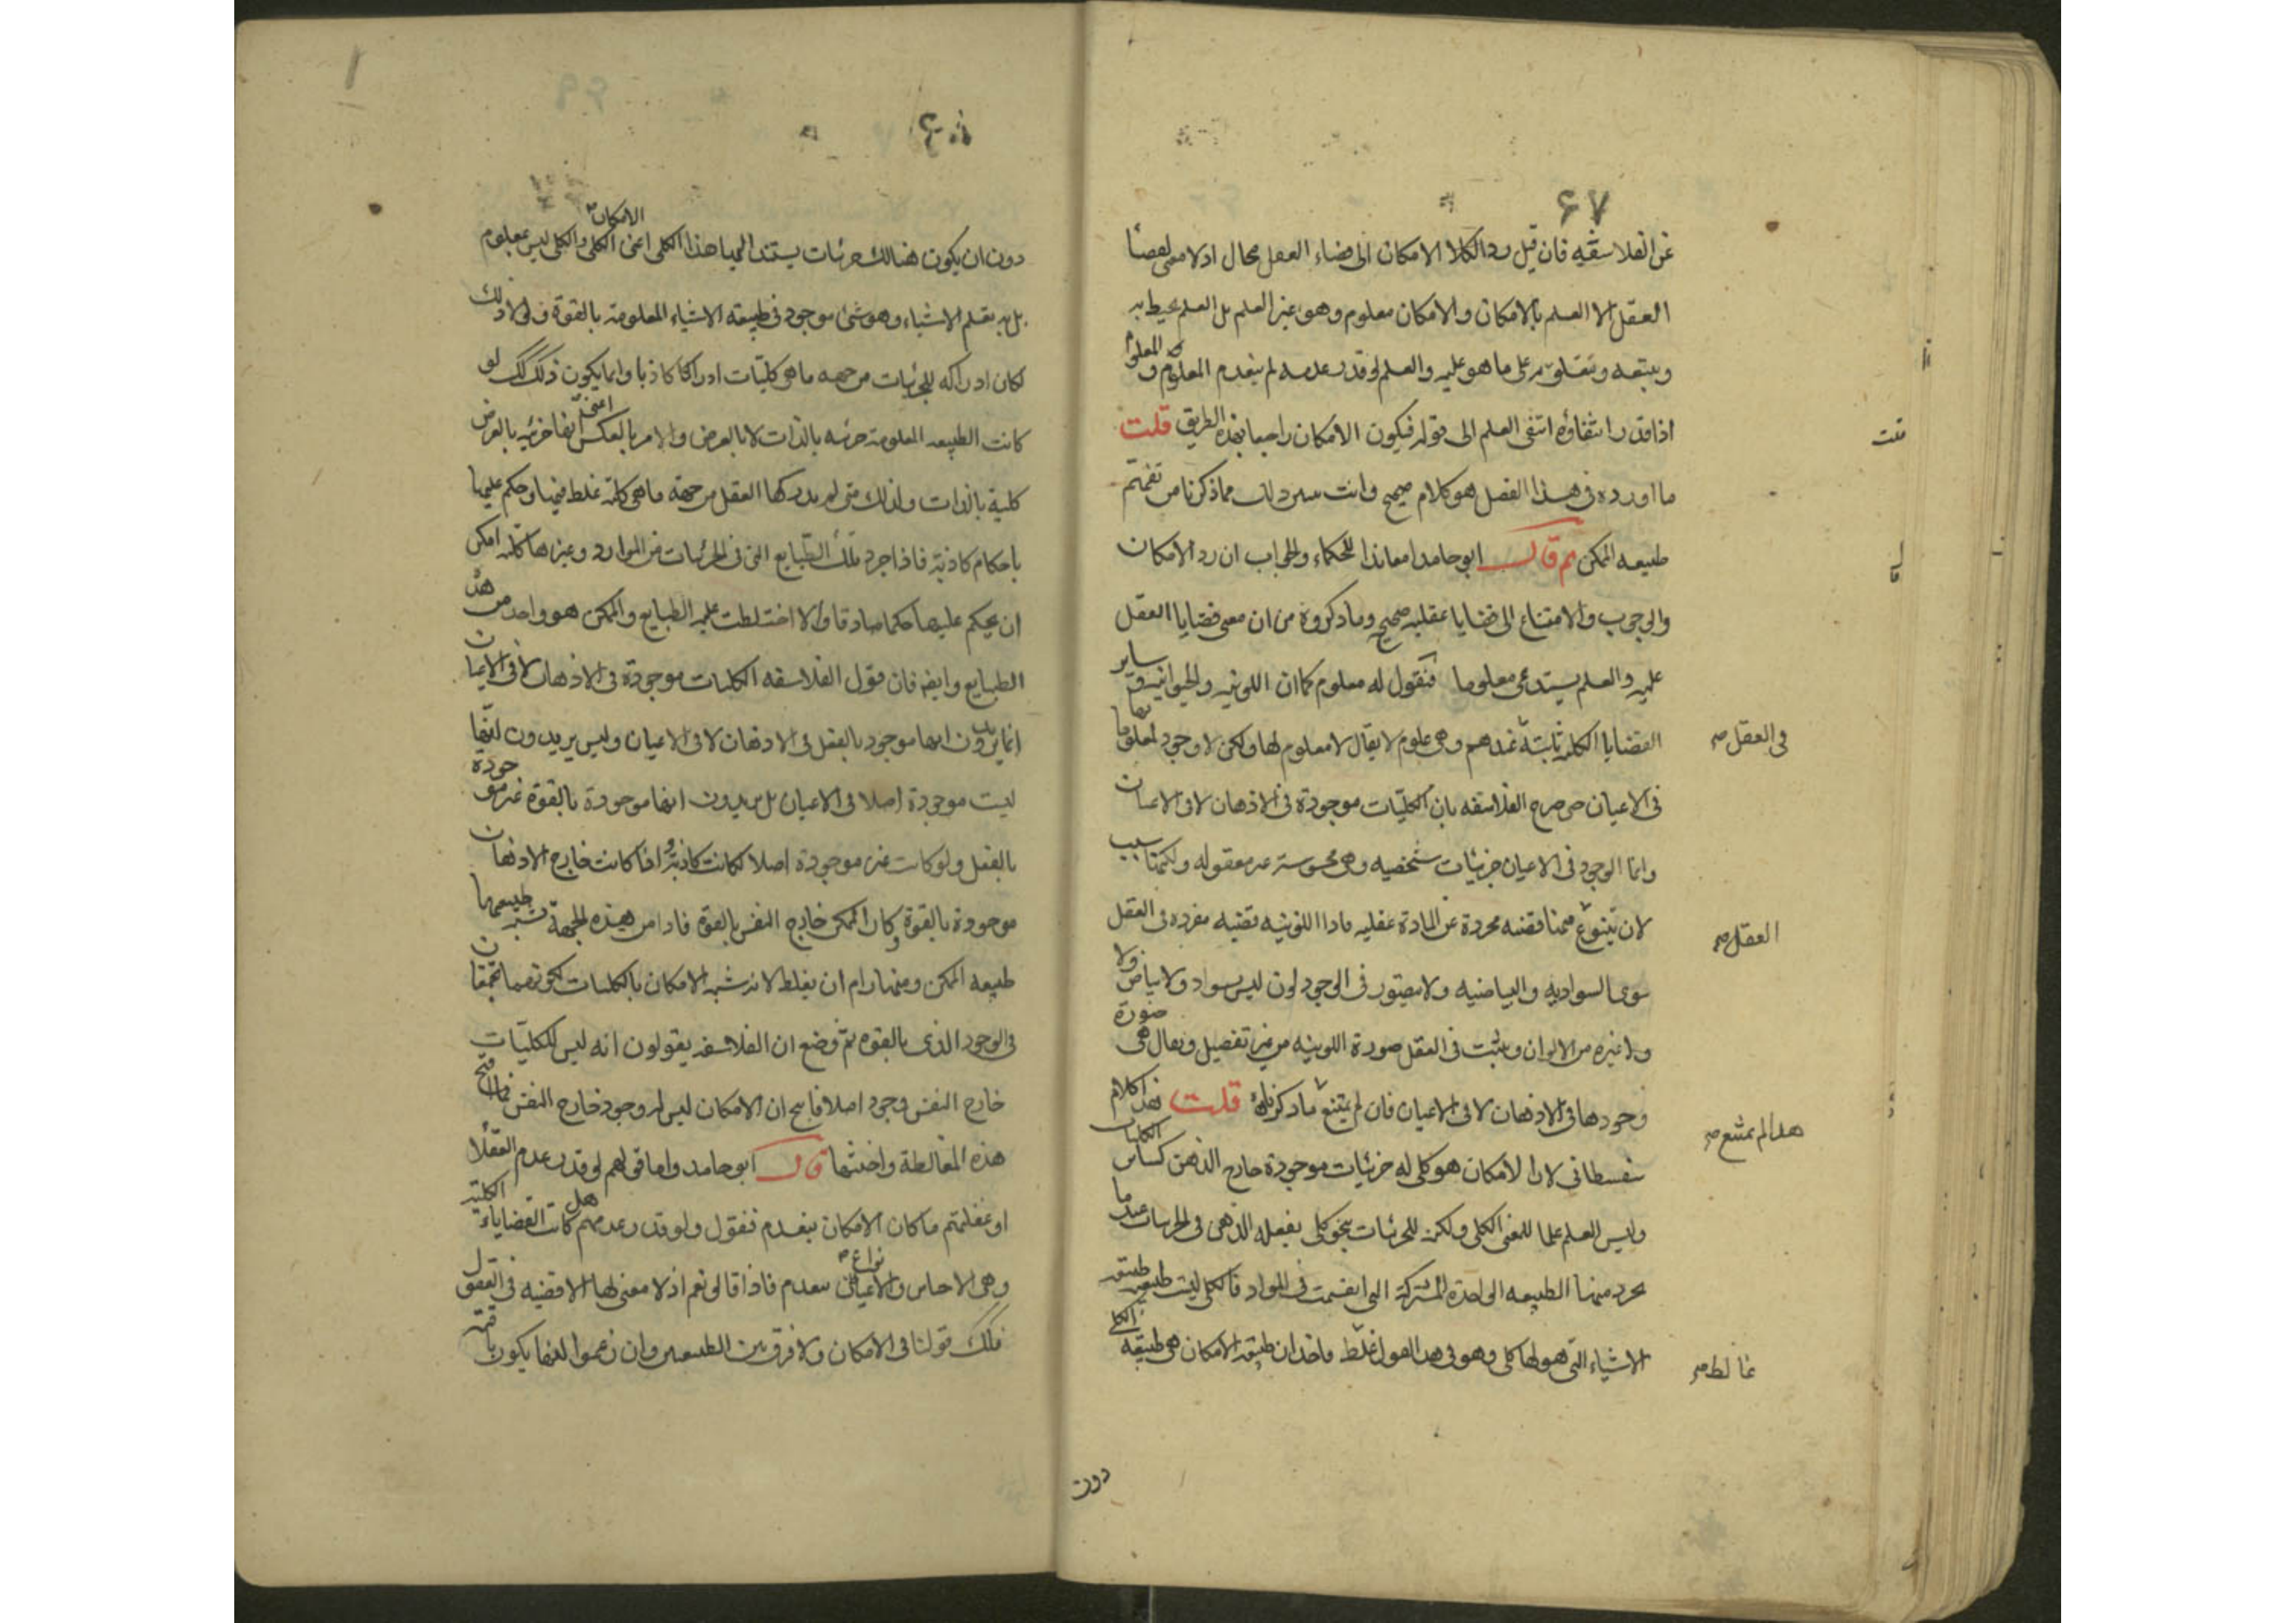 ٤٧
عن الفلاسفه فان قيل رد الكلا الامكان الى قضاء العقل محال اذ لا معنى لقضا
العقل الا العلم بالامكان والامكان معلوم وهو غير العلم بل العلم يحيط به
ويتبعه ويتعلق به على ما هو عليه والعلم لو قدر عدمه لم ينعدم المعلوم و المعلوم
اذا قدر انتفاؤه انتفى العلم الى قوله فيكون الامكان راجعا بهذه الطريق قلت
ما اورده فى هذا الفصل هو كلام صحيح وانت مما ذكرنا من تفهم
طبيعه الممكن ثم قال ابو حامد معاندا للحكماء والجواب ان رد الامكان
والوجوب والامتناع الى قضايا عقليه صحيح وما ذكروه من ان معنى قضايا العقل
عليه والعلم يستدعى معلوما فنقول له معلوم كما ان اللونيه والحيوانيه و ساير
القضايا الكليه ثابتة عندهم وهى علوم لا يقال لا معلوم لها ولكن لا وجود لمعلوماتها
فى الاعيان حتى صرح الفلاسفه بان الكليات موجودة فى الاذهان لا فى الاعيان
وانما الوجود فى الاعيان جزئيات شخصيه وهى محسوسة غير معقوله ولكنها سبب
لان ينتزع منها قضيه مجردة عن المادة عقليه فاذا اللونيه قضيه مفرده فى العقل
سوى السواديه والبياضيه ولا يتصور فى الوجود لون ليس بسواد ولا بياض ولا
ولا غيره من الالوان ويثبت فى العقل صورة اللونيه من غير تفصيل ويقال هى صورة
وجودها فى الاذهان لا فى الاعيان فان لم يمتنع ما ذكرناه قلت هذا كلام
سفسطانى لان الامكان هو كلى له جزئيات موجودة خارج الذهن كسائر الكليات
وليس العلم علما للمعنى الكلى ولكنه للجزئيات بنحو كلى يفعله الذهن فى الجزئيات عندما
يجرد منها الطبيعه الواحدة المشتركة التى انقسمت فى المواد فالكلى ليست طبيعته طبيعة
الاشياء التى هو لها كلى وهو فى هذا القول غلط فاخذ ان طبيعة الامكان هى طبيعة الكلى
فى العقل صح
العقل صح
هذا لم يمتنع صح
غالط صح
دون
دون ان يكون هنالك جزئيات يستند اليها هذا الكلى اعنى الامكان الكلى والكلى ليس بمعلوم
بل به تعلم الاشياء وهو شئ موجود فى طبيعة الاشياء المعلومة بالقوة ولولا ذلك
لكان ادراكه للجزئيات من جهه ما هى كليات ادراكا كاذبا وانما يكون ذلك كذلك لو
كانت الطبيعه المعلومة جزئيه بالذات لا بالعرض والامر بالعكس اعنى انها جزئيه بالعرض
كلية بالذات ولذلك متى لم يدركها العقل من جهة ما هى كلية غلط فيها وحكم عليها
باحكام كاذبة فاذا جرد تلك الطبايع التى فى الجزئيات من المواد وصيرها كليه امكن
ان يحكم عليها حكما صادقا والا اختلطت عليه الطبايع والممكن هو واحد من هذه
الطبايع وايضا فان قول الفلاسفه الكليات موجودة فى الاذهان لا فى الاعيان
انما يريدون انها موجود بالفعل فى الاذهان لا فى الاعيان وليس يريدون انها
ليست موجودة اصلا فى الاعيان بل يريدون انها موجودة بالقوة غير موجودة
بالفعل ولو كانت غير موجودة اصلا لكانت كاذبة و اذا كانت خارج الاذهان
موجودة بالقوة وكان الممكن خارج النفس بالقوة فاذا من هذه الجهة تشبه طبيعتها
طبيعه الممكن ومنها رام ان يغلط لانه شبه الامكان بالكليات لكونهما يجتمعان
فى الوجود الذى بالقوه ثم وضع ان الفلاسفه يقولون انه ليس للكليات
خارج النفس وجود اصلا فانتج ان الامكان ليس له وجود خارج النفس فما اقبح
هذه المغالطة واخبثها قال ابو حامد واما قولهم لو قدر عدم العقلا
او غفلتهم ما كان الامكان ينعدم فنقول ولو قدر عدمهم هل كانت القضايا الكلية
وهى الاجناس والانواع تنعدم فاذا قالوا نعم اذ لا معنى لها الا قضيه فى العقول
فكذلك قولنا فى الامكان ولا فرق بين الطبيعتين وان زعموا انها يكون باقية